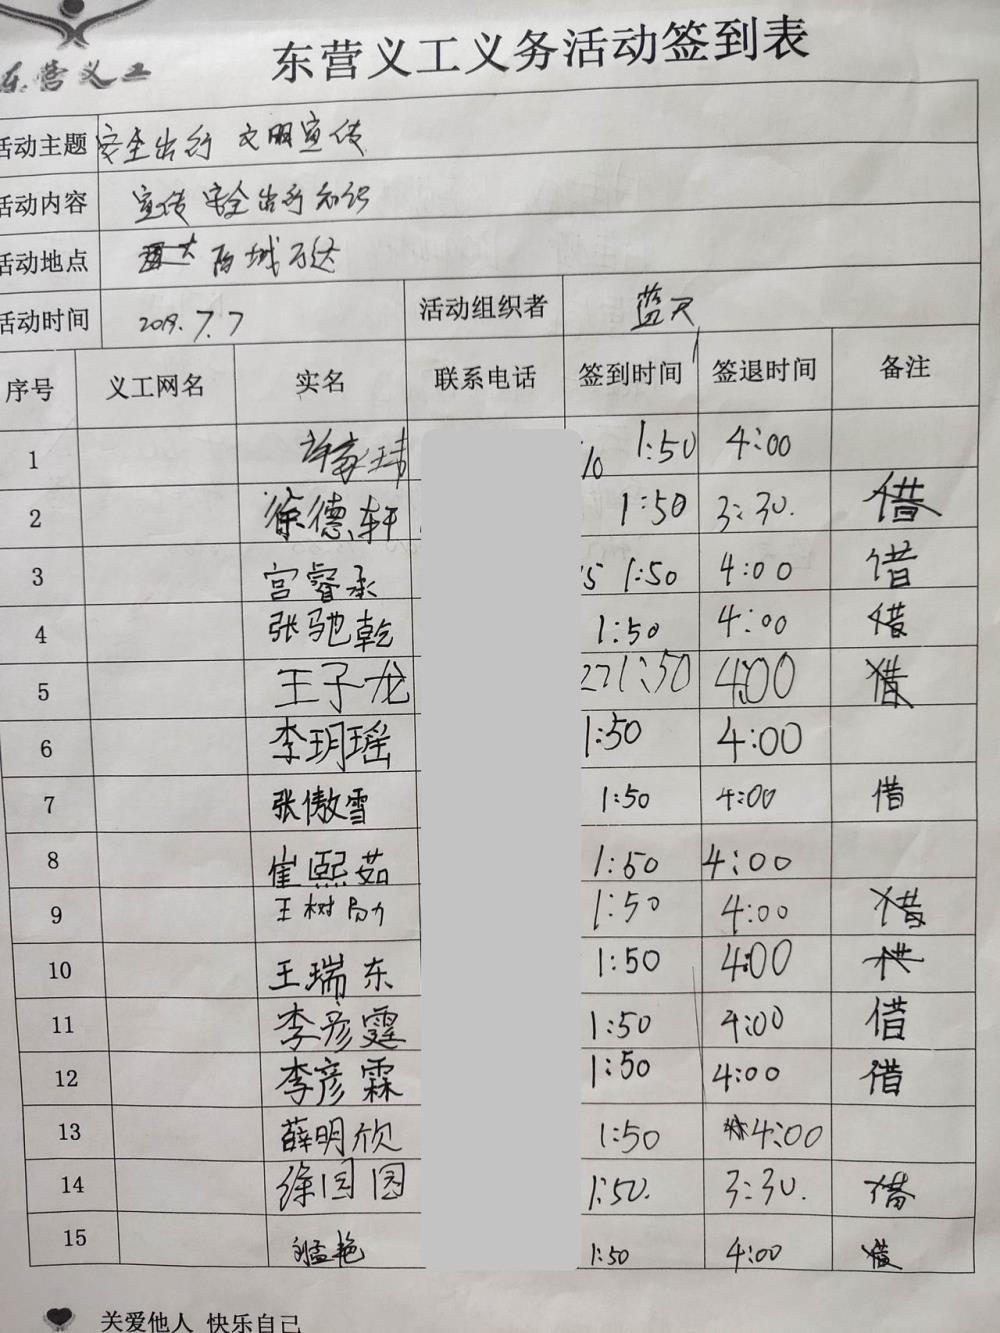 东营义工
东营义工义务活动签到表
活动主题 安全出行 文明宣传
活动内容 宣传安全出行知识
活动地点 西城万达
活动时间 2019.7.7 活动组织者 蓝天
序号 义工网名 实名 联系电话 签到时间 签退时间 备注
1 1:50 4:00
2 徐德轩 1:50 3:30. 借
3 宫睿承 1:50 4:00 借
4 张驰乾 1:50 4:00 借
5 王子龙 1:50 4:00 借
6 李玥瑶 1:50 4:00
7 张傲雪 1:50 4:00 借
8 崔熙茹 1:50 4:00
9 王树 1:50 4:00 借
10 王瑞东 1:50 4:00
11 李彦霆 1:50 4:00 借
12 李彦霖 1:50 4:00 借
13 薛明欣 1:50 4:00
14 徐园园 1:50. 3:30. 借
15 艳 1:50 4:00 借
关爱他人 快乐自己